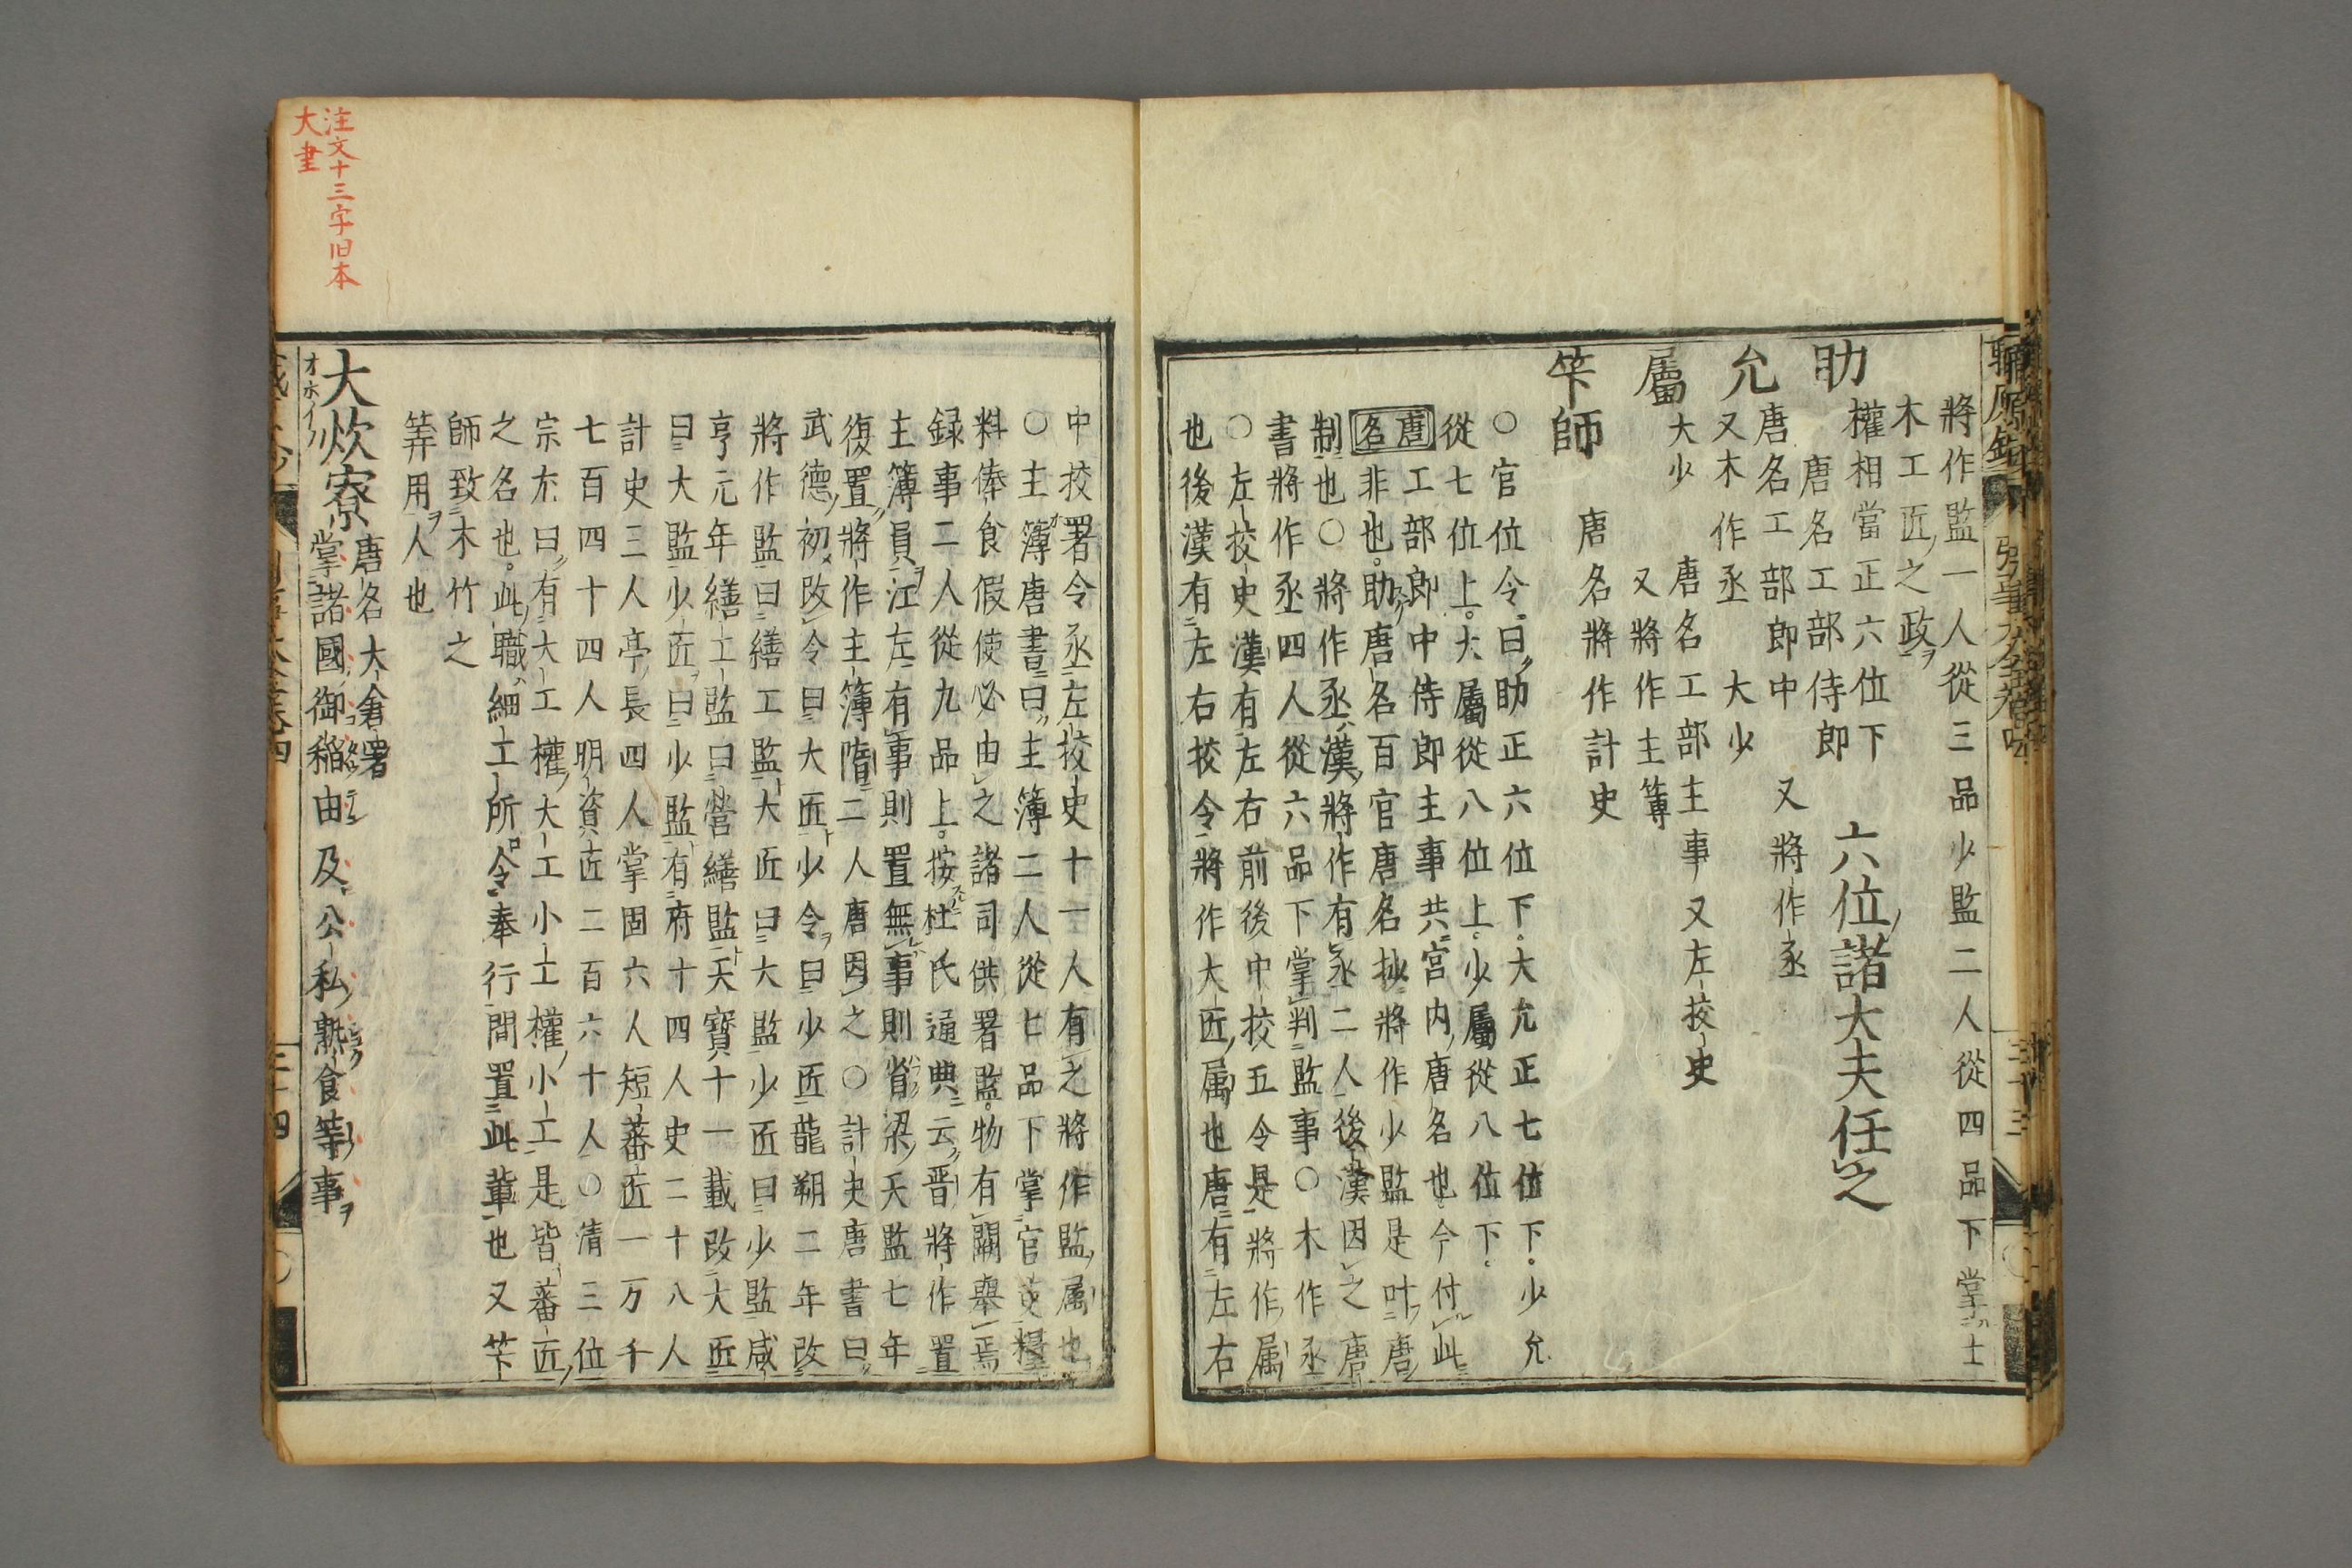 將作監一人從三品少監二人從四品下掌土
木工匠之政ヲ
權相當正六位下　六位諸大夫任之
助　唐名工部侍郎　又將作丞
允　唐名工部郎中
又木作丞　大少
屬　唐名工部主事又左校史
大少　又將作主簿
笇師　唐名將作計史
○官位令曰助正六位下大允正七位下少允
從七位上大屬從八位上少屬從八位下
唐工部郎中侍郎主事共宮内唐名也今付此
名非也助唐名百官唐名抄將作少監是叶唐
制也○將作丞漢將作有丞二人後漢因之唐
書將作丞四人從六品下掌判監事○木作丞
○左校史漢有左右前後中校五令是將作属
也後漢有左右校令將作大匠属也唐有左右
中校署令丞左校史十一人有之將作監属也
○主簿唐書曰主簿二人從七品下掌官吏糧
料俸食假使必由之諸司供署監物有闕舉焉
録事二人從九品上按杜氏通典云晋將作置
主簿員江左有事則置無事則省梁天監七年
復置將作主簿隋二人唐因之○計史唐書曰
武德初改令曰大匠少令曰少匠龍朔二年改
將作監曰繕工監大匠曰大監少匠曰少監咸
亨元年繕工監曰營繕監天寳十一載改大匠
曰大監少匠曰少監有府十四人史二十八人
計史三人亭長四人掌固六人短蕃匠一万千
七百四十四人明資匠二百六十人○清三位
宗尓曰有大工權大工小工權小工是皆蕃匠
之名也此職細工所令奉行間置此輩也又笇
師致木竹之
筭用ヲ人也
大炊寮　唐名大倉署
オホイノ　掌諸國御稲由及公私熟食等事ヲ
注文十三字旧本
大書
職原鈔引事大全卷四
三十三
三十四